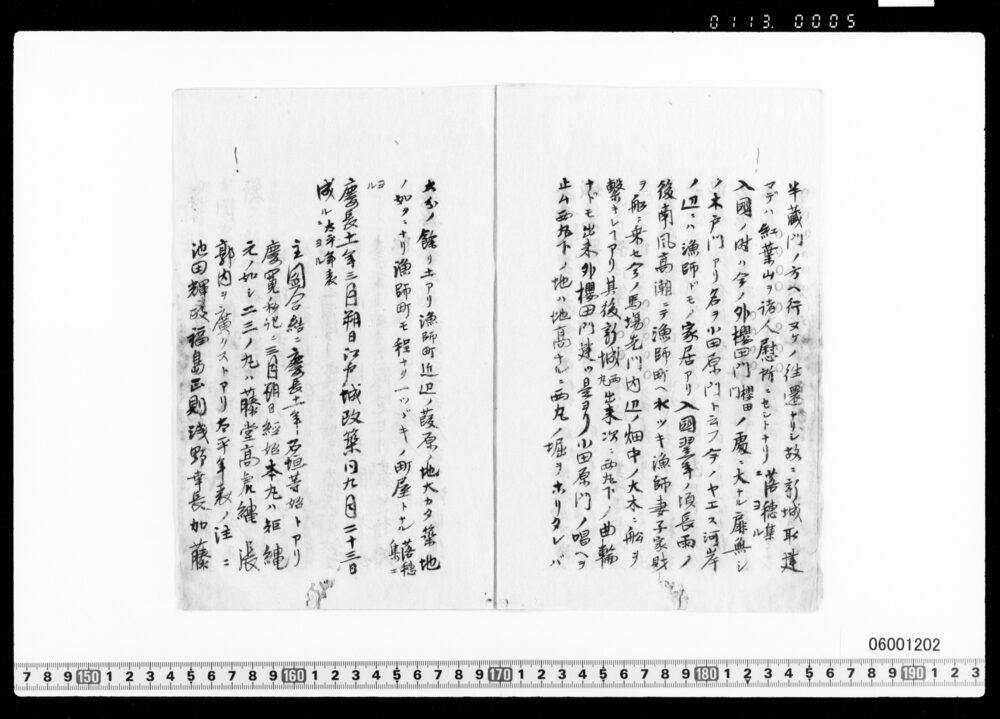 0113 0005
半蔵門ノ方ヘ行ヌケノ往還ナリシ故ニ新城取建
マデハ紅葉山ヲ諸人慰所ニセシトナリ落穂集ニヨル
入國ノ時ハ今ノ外櫻田門櫻田門ノ處ニ大ナル扉無シ
ノ木戸門アリ名ヲ小田原門ト云フ今ノヤエス河岸
ノ辺ニハ漁師ドモノ家居アリ入國翌年ノ頃長雨ノ
後南風高潮ニテ漁師町ヘ水ツキ漁師妻子家財
ヲ船ニ乗セ今ノ馬場先門内辺ノ畑中ノ大木ニ船ヲ
繋ナレリアリ其後新城西丸出来次ニ西丸下ノ曲輪
ナドモ出来外櫻田門建ツ是ヨリ小田原門ノ唱ヘヲ
止ム西丸下ノ地ハ地高ナルニ西丸ノ堀ヲホリタレバ
大分ノ餘リ土アリ漁師町近辺ノ葭原ノ地大カタ築地
ノ如クニナリ漁師町モ程ナリ一ツヾキノ町屋トナル落穂集ニヨル
慶長十一年三月朔日江戸城改築同九月二十三日
成ル太平年表ニヨル
主圖合結ニ慶長十一年ニ石垣等始トアリ
慶寛私記ニ三月朔日経始本丸ハ矩縄
元ノ如シ二三ノ丸ハ藤堂高虎縄張
郭内ヲ廣クストアリ太平年表ノ注ニ
池田輝政福島正則浅野幸長加藤
06001202
7 8 9 150 1 2 3 4 5 6 7 8 9 160 1 2 3 4 5 6 7 8 9 170 1 2 3 4 5 6 7 8 9 180 1 2 3 4 5 6 7 8 9 190 1 2 3